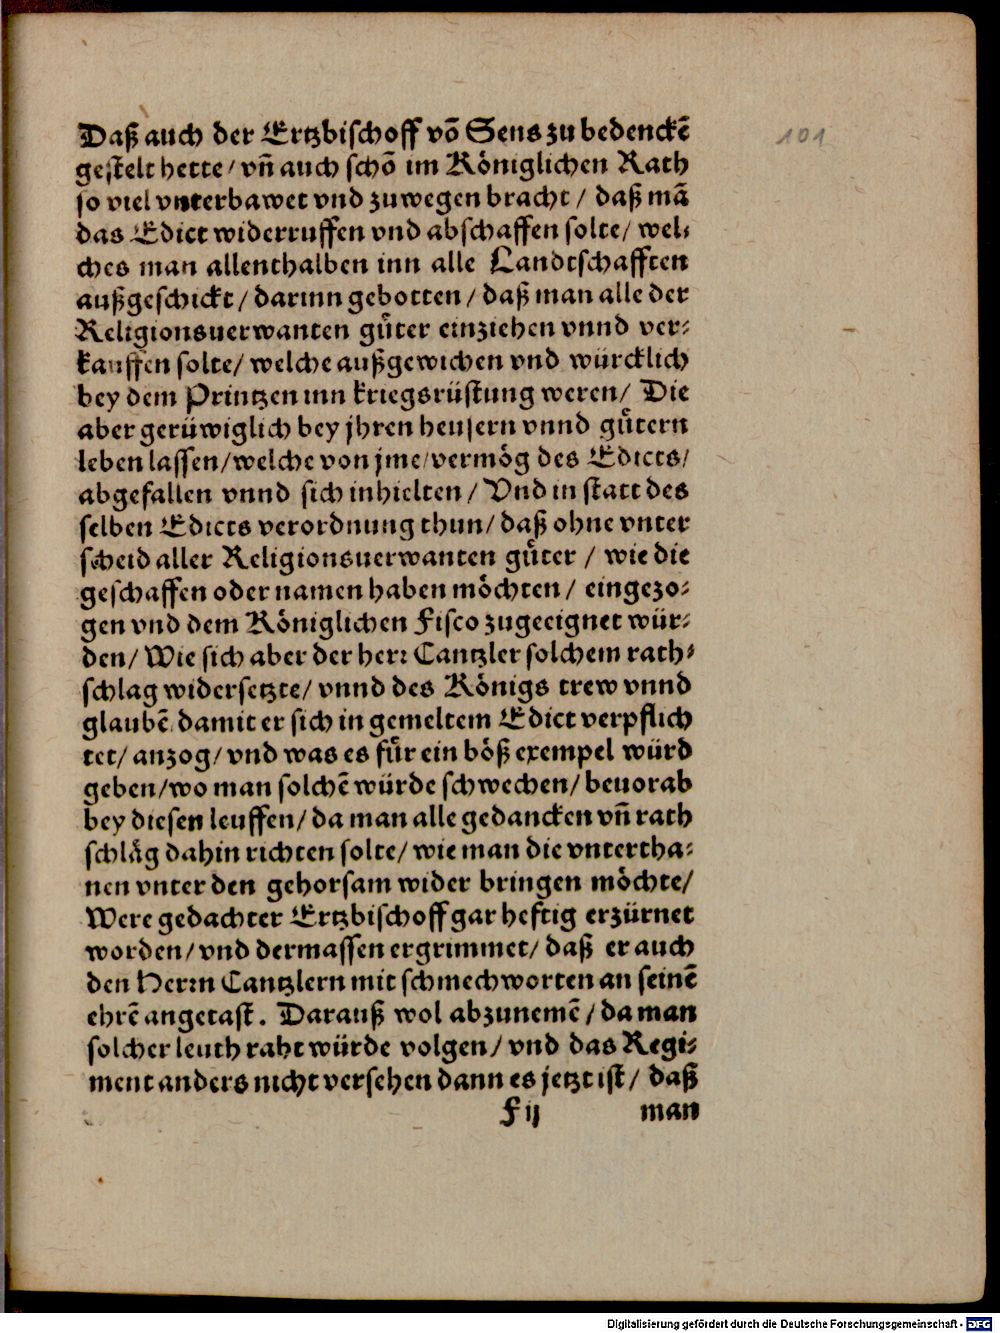 Daß auch der Ertzbischoff võ Sens zu bedenckẽ
101
gestelt hette / vñ auch schõ im Königlichen Rath
so viel vnterbawet vnd zuwegen bracht / daß mã
das Edict widerruffen vnd abschaffen solte / wel⸗
ches man allenthalben inn alle Landtschafften
außgeschickt / darinn gebotten / daß man alle der
Religionsuerwanten gůter einziehen vnnd ver⸗
kauffen solte / welche außgewichen vnd würcklich
bey dem Printzen inn kriegsrüstung weren / Die
aber gerüwiglich bey jhren heusern vnnd gůtern
leben lassen / welche von jme / vermög des Edicts /
abgefallen vnnd sich inhielten / Vnd in statt des
selben Edicts verordnung thun / daß ohne vnter
scheid aller Religionsuerwanten gůter / wie die
geschaffen oder namen haben möchten / eingezo⸗
gen vnd dem Königlichen Fisco zugeeignet wür⸗
den / Wie sich aber der herr Cantzler solchem rath⸗
schlag widersetzte / vnnd des Königs trew vnnd
glaubẽ damit er sich in gemeltem Edict verpflich
tet / anzog / vnd was es für ein böß exempel würd
geben / wo man solchẽ würde schwechen / beuorab
bey diesen leuffen / da man alle gedancken vñ rath
schläg dahin richten solte / wie man die vntertha⸗
nen vnter den gehorsam wider bringen möchte /
Were gedachter Ertzbischoff gar heftig erzürnet
worden / vnd dermassen ergrimmet / daß er auch
den Herrn Cantzlern mit schmechworten an seinẽ
ehrẽ angetast. Darauß wol abzunemẽ / da man
solcher leuth raht würde volgen / vnd das Regi⸗
ment anders nicht versehen dann es jetzt ist / daß
F ij man
Digitalisierung gefördert durch die Deutsche Forschungsgemeinschaft - DFG